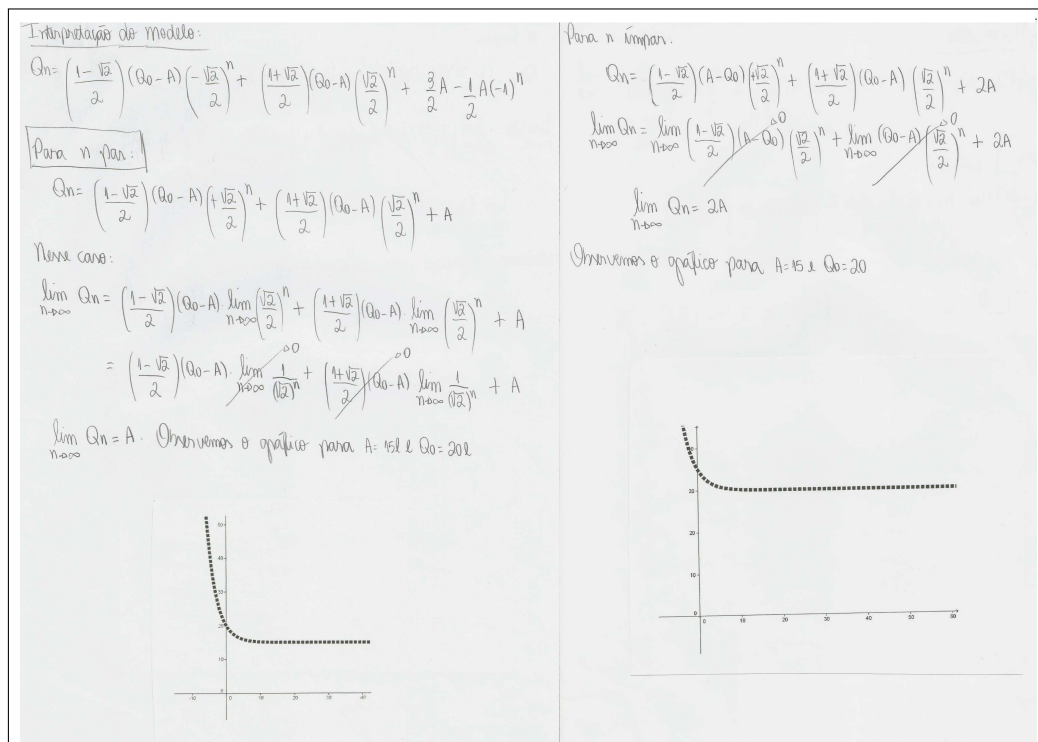 Interpretação do modelo:
Qn= ((1-√2)/2)(Q0-A)(-√2/2)^n + ((1+√2)/2)(Q0-A)(√2/2)^n + 3/2 A - 1/2 A(-1)^n
Para n par:
Qn= ((1-√2)/2)(Q0-A)(+√2/2)^n + ((1+√2)/2)(Q0-A)(√2/2)^n + A
Nesse caso:
lim n→∞ Qn = ((1-√2)/2)(Q0-A). lim n→∞ (√2/2)^n + ((1+√2)/2)(Q0-A). lim n→∞ (√2/2)^n + A
= ((1-√2)/2)(Q0-A). lim n→∞ 1/(√2)^n →0 + ((1+√2)/2)(Q0-A) lim n→∞ 1/(√2)^n →0 + A
lim n→∞ Qn = A. Observemos o gráfico para A= 15l e Q0= 20l
50
40
30
20
10
0
-10 0 10 20 30 40
Para n ímpar.
Qn= ((1-√2)/2)(A-Q0)(+√2/2)^n + ((1+√2)/2)(Q0-A)(√2/2)^n + 2A
lim n→∞ Qn= lim n→∞ ((1-√2)/2)(A-Q0)(√2/2)^n →0 + lim n→∞ (Q0-A)(√2/2)^n →0 + 2A
lim n→∞ Qn= 2A
Observemos o gráfico para A=15 e Q0=20
40
30
20
10
0
0 10 20 30 40 50 60